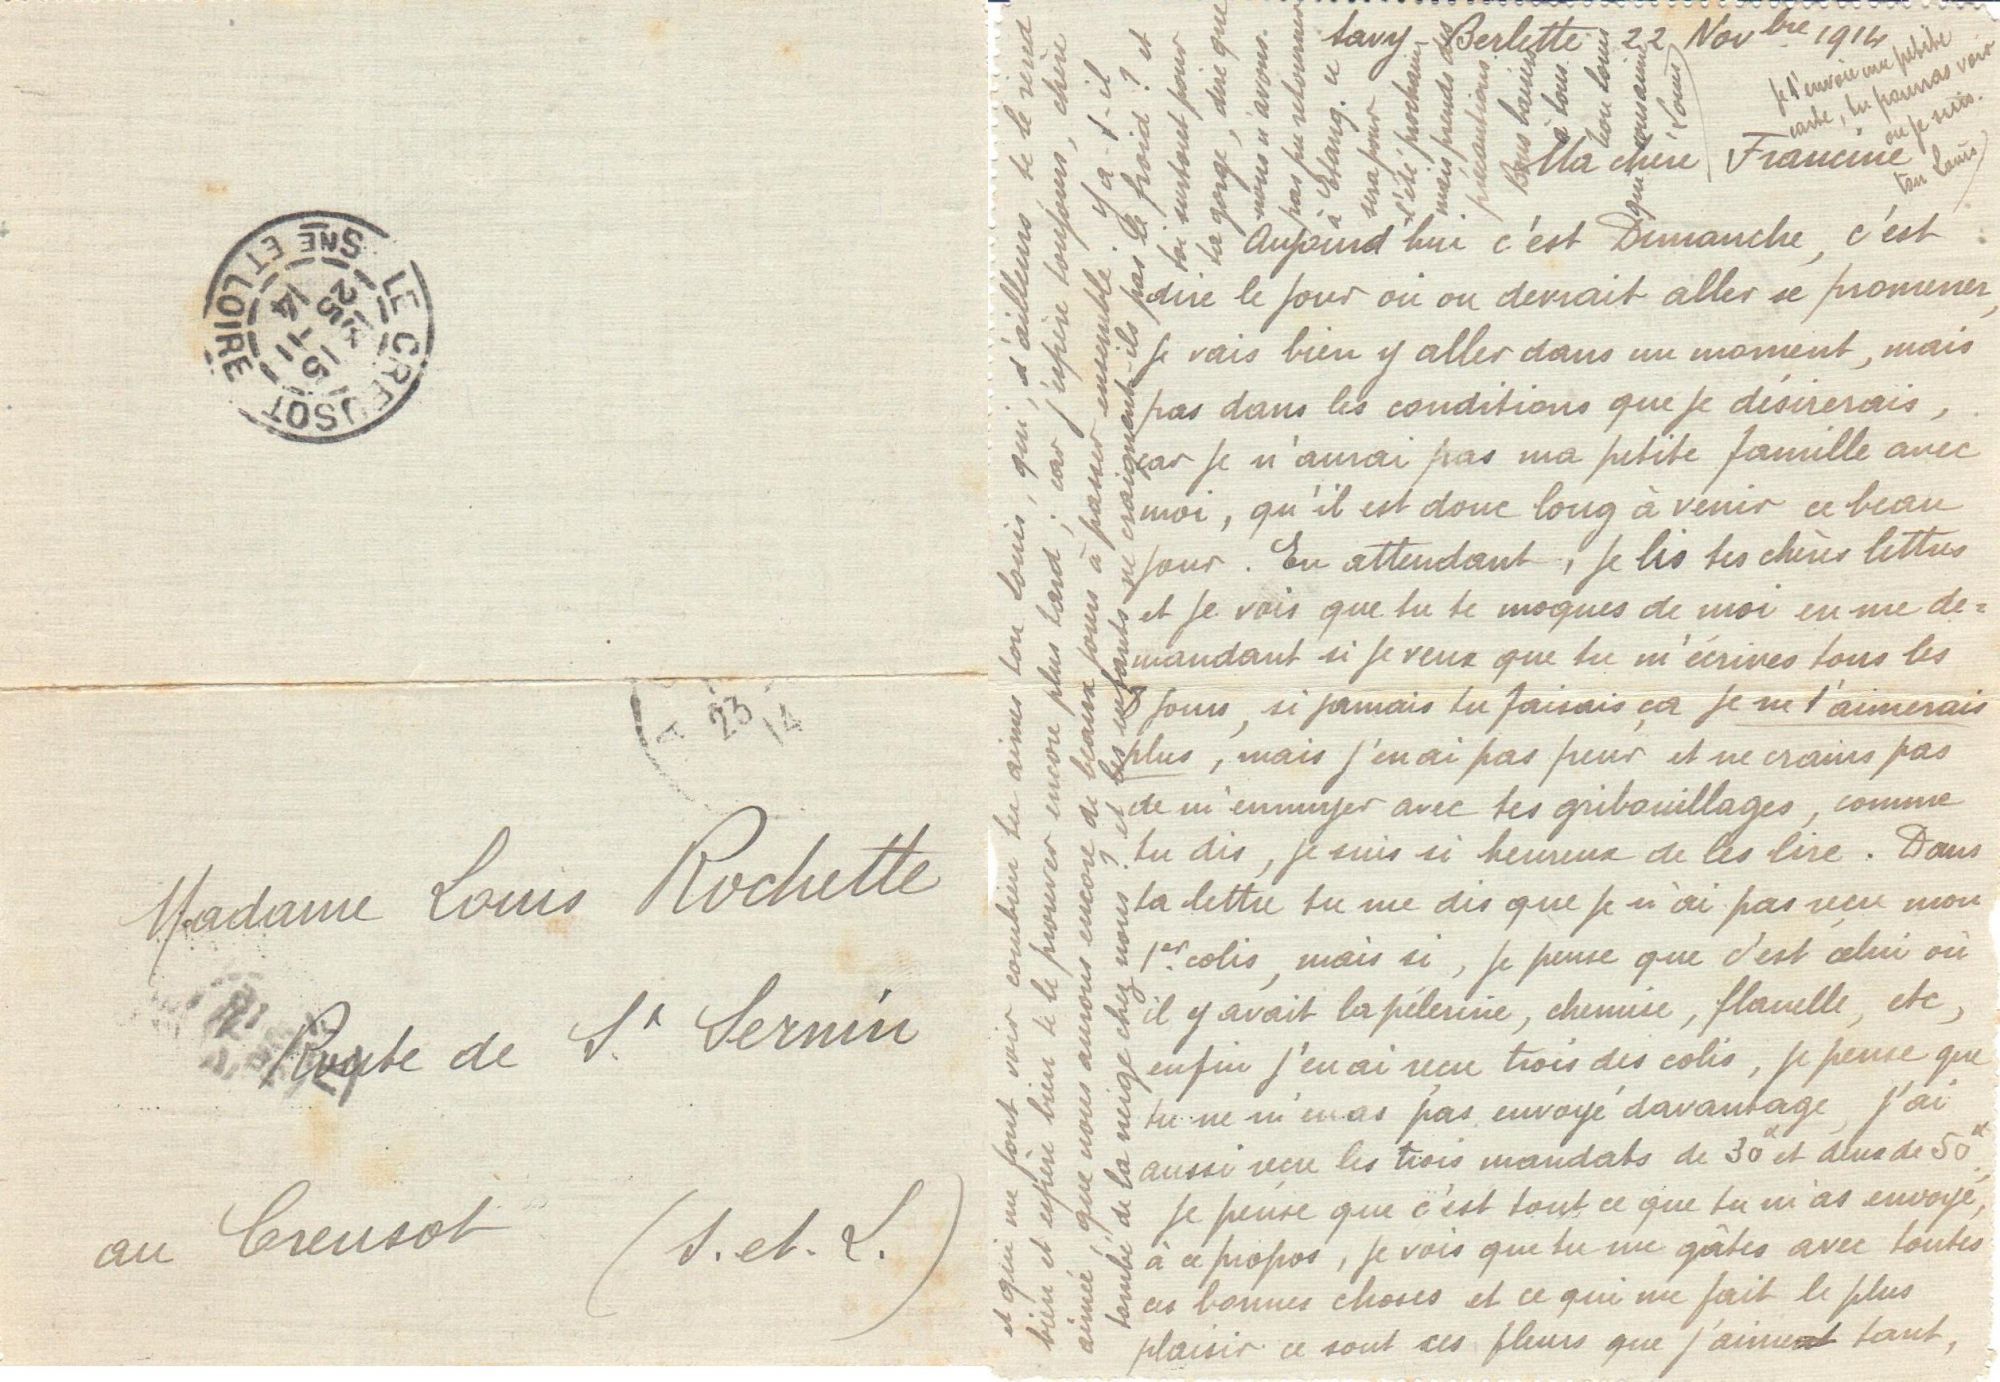 LE CREUSOT
SNE ET LOIRE
15
25 -11
14
23
14
Madame Louis Rochette
Route de St Sernin
au Creusot (S. et. L.)
Savy-Berlette 22 Novbre 1914
Je t'envoie une petite
carte, tu pourras voir
ou je suis.
ton Louis
Ma chère Francine
Aujourd'hui c'est Dimanche, c'est
dire le jour où on devrait aller se promener,
je vais bien y aller dans un moment, mais
pas dans les conditions que je désirerais,
car je n'aurai pas ma petite famille avec
moi, qu'il est donc long à venir ce beau
jour. En attendant, je lis tes chères lettres
et je vois que tu te moques de moi en me de=
mandant si je veux que tu m'écrives tous les
8 jours, si jamais tu faisais ça je ne t'aimerais
plus, mais j'en ai pas peur et ne crains pas
de m'ennuyer avec tes gribouillages, comme
tu dis, je suis si heureux de les lire. Dans
ta lettre tu me dis que je n'ai pas reçu mon
1er colis, mais si, je pense que c'est celui où
il y avait la pélerine, chemise, flanelle, etc,
enfin j'en ai reçu trois des colis, je pense que
tu ne m'en as pas envoyé davantage, j'ai
aussi reçu les trois mandats de 30 et deux de 50
je pense que c'est tout ce que tu m'as envoyé,
à ce propos, je vois que tu me gâtes avec toutes
ces bonnes choses et ce qui me fait le plus
plaisir ce sont ces fleurs que j'aime tant,
et qui me font voir combien tu aimes ton Louis, qui, d'ailleurs te le rend
bien et espère bien te le prouver encore plus tard, car j'espère toujours, chère
aimée, que nous aurons encore de beaux jours à passer ensemble. Y a-t-il
tombé de la neige chez nous? et les enfants ne craignent-ils pas le froid? et
toi surtout pour
ta gorge, dire que
nous n'avons
pas pu retourner
à Etang. ce
sera pour
l'été prochain
mais prends des
précautions.
Bons baisers
à tous.
ton Louis
que vous aime
Louis